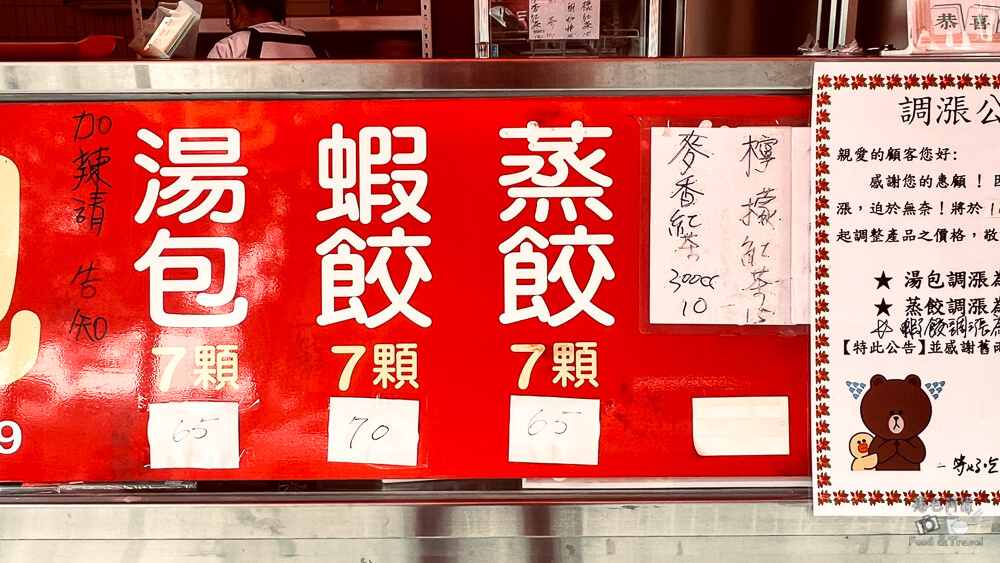 加辣請告知
湯包
7顆
65
蝦餃
7顆
70
蒸餃
7顆
65
麥香紅茶
300cc
10
檸檬紅茶
15
9
恭喜
調漲公
親愛的顧客您好:
感謝您的惠顧！因
漲，迫於無奈！將於 1
起調整產品之價格，敬
★ 湯包調漲為
★ 蒸餃調漲為
蝦餃調漲為
【特此公告】並感謝舊雨
Food & Travel